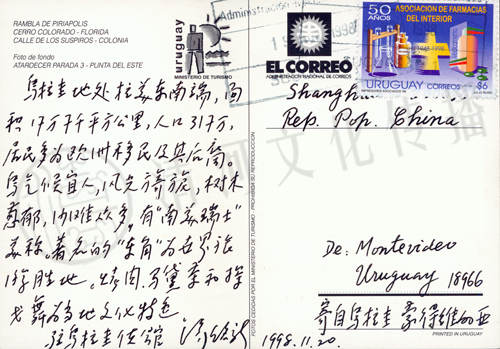 RAMBLA DE PIRIAPOLIS
CERRO COLORADO - FLORIDA
CALLE DE LOS SUSPIROS - COLONIA
Foto de fondo
ATARDECER PARADA 3 - PUNTA DEL ESTE
uruguay
MINISTERIO DE TURISMO
EL CORREO
ADMINISTRACION NACIONAL DE CORREOS
50 AÑOS
ASOCIACION DE FARMACIAS DEL INTERIOR
1948-1998
URUGUAY CORREOS
$6
1998
乌拉圭地处拉美东南端,面
积17万7千平方公里,人口317万,
居民多为欧洲移民及其后裔。
乌气候宜人,风光旖旎,树木
葱郁,沙滩众多,有"南美瑞士"
美称。著名的"东角"为世界旅
游胜地。烤肉、马黛茶和探
戈舞为当地文化特色
驻乌拉圭使馆
Shanghai
Rep. Pop. China
De: Montevideo
Uruguay 18966
寄自乌拉圭 蒙得维的亚
1998.11.20.
FOTOS CEDIDAS POR EL MINISTERIO DE TURISMO - PROHIBIDA SU REPRODUCCION
PRINTED IN URUGUAY
文化传播